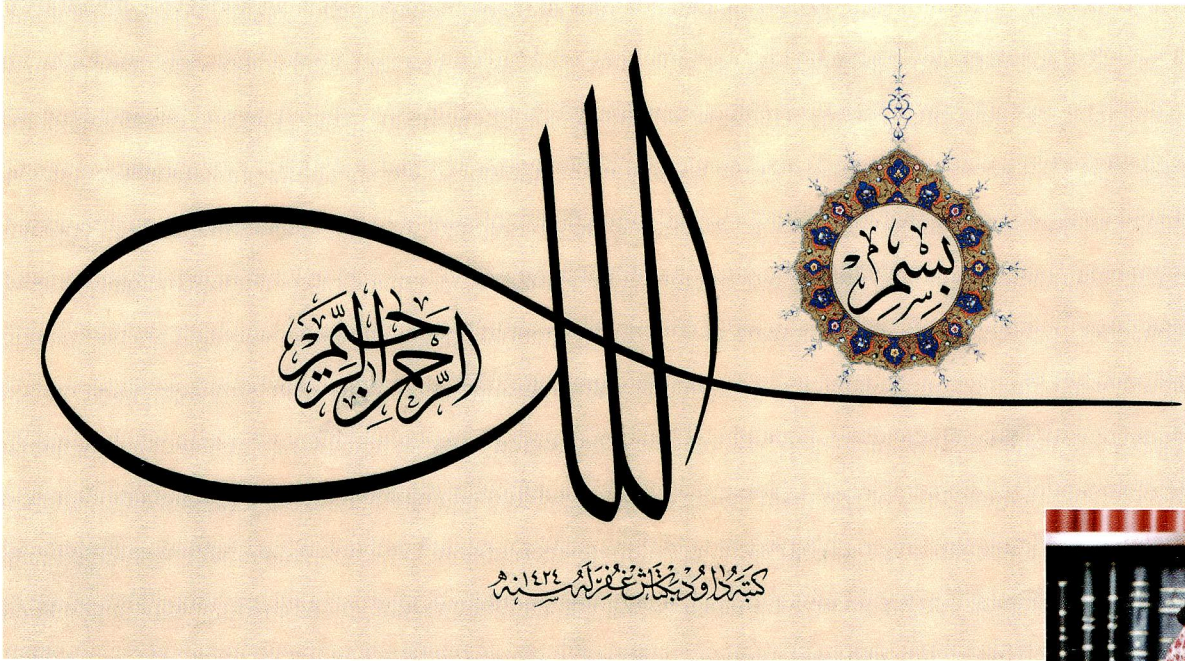 بِسْمِ
اللّٰه
الرَّحْمٰنِ الرَّحِيْمِ
كتبه داود بكتاش غفر له سنه ١٤٢٤